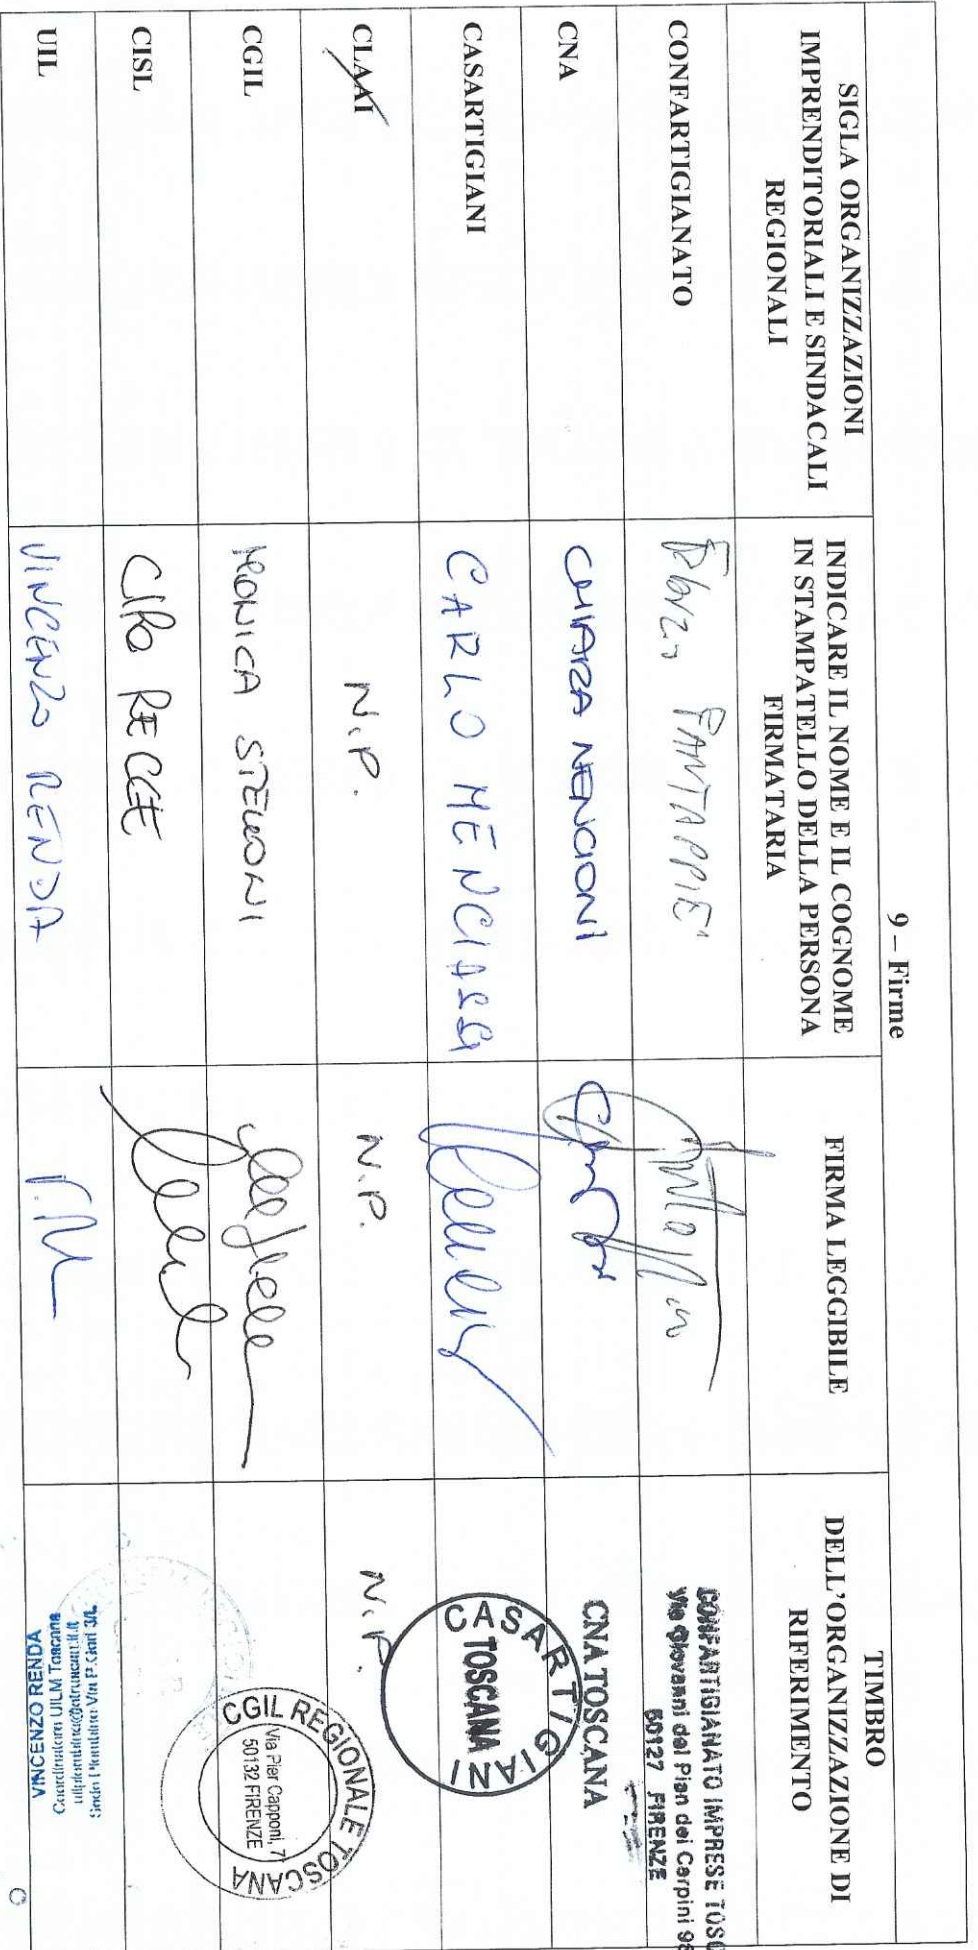 9 – Firme
SIGLA ORGANIZZAZIONI
IMPRENDITORIALI E SINDACALI
REGIONALI
INDICARE IL NOME E IL COGNOME
IN STAMPATELLO DELLA PERSONA
FIRMATARIA
FIRMA LEGGIBILE
TIMBRO
DELL'ORGANIZZAZIONE DI
RIFERIMENTO
CONFARTIGIANATO
FANTAPPIE'
CONFARTIGIANATO IMPRESE TOSC
Via Giovanni del Pian dei Carpini 96
50127 FIRENZE
CNA
CHIARA NENCIONI
CNA TOSCANA
CASARTIGIANI
CARLO MENCIASSI
CASARTIGIANI
TOSCANA
CLAAI
N.P.
N.P.
N.P.
CGIL
MONICA STELLONI
CGIL REGIONALE TOSCANA
Via Pier Capponi, 7
50132 FIRENZE
CISL
CIRO RECCE
UIL
VINCENZO RENDA
VINCENZO RENDA
Coordinatore UILM Toscana